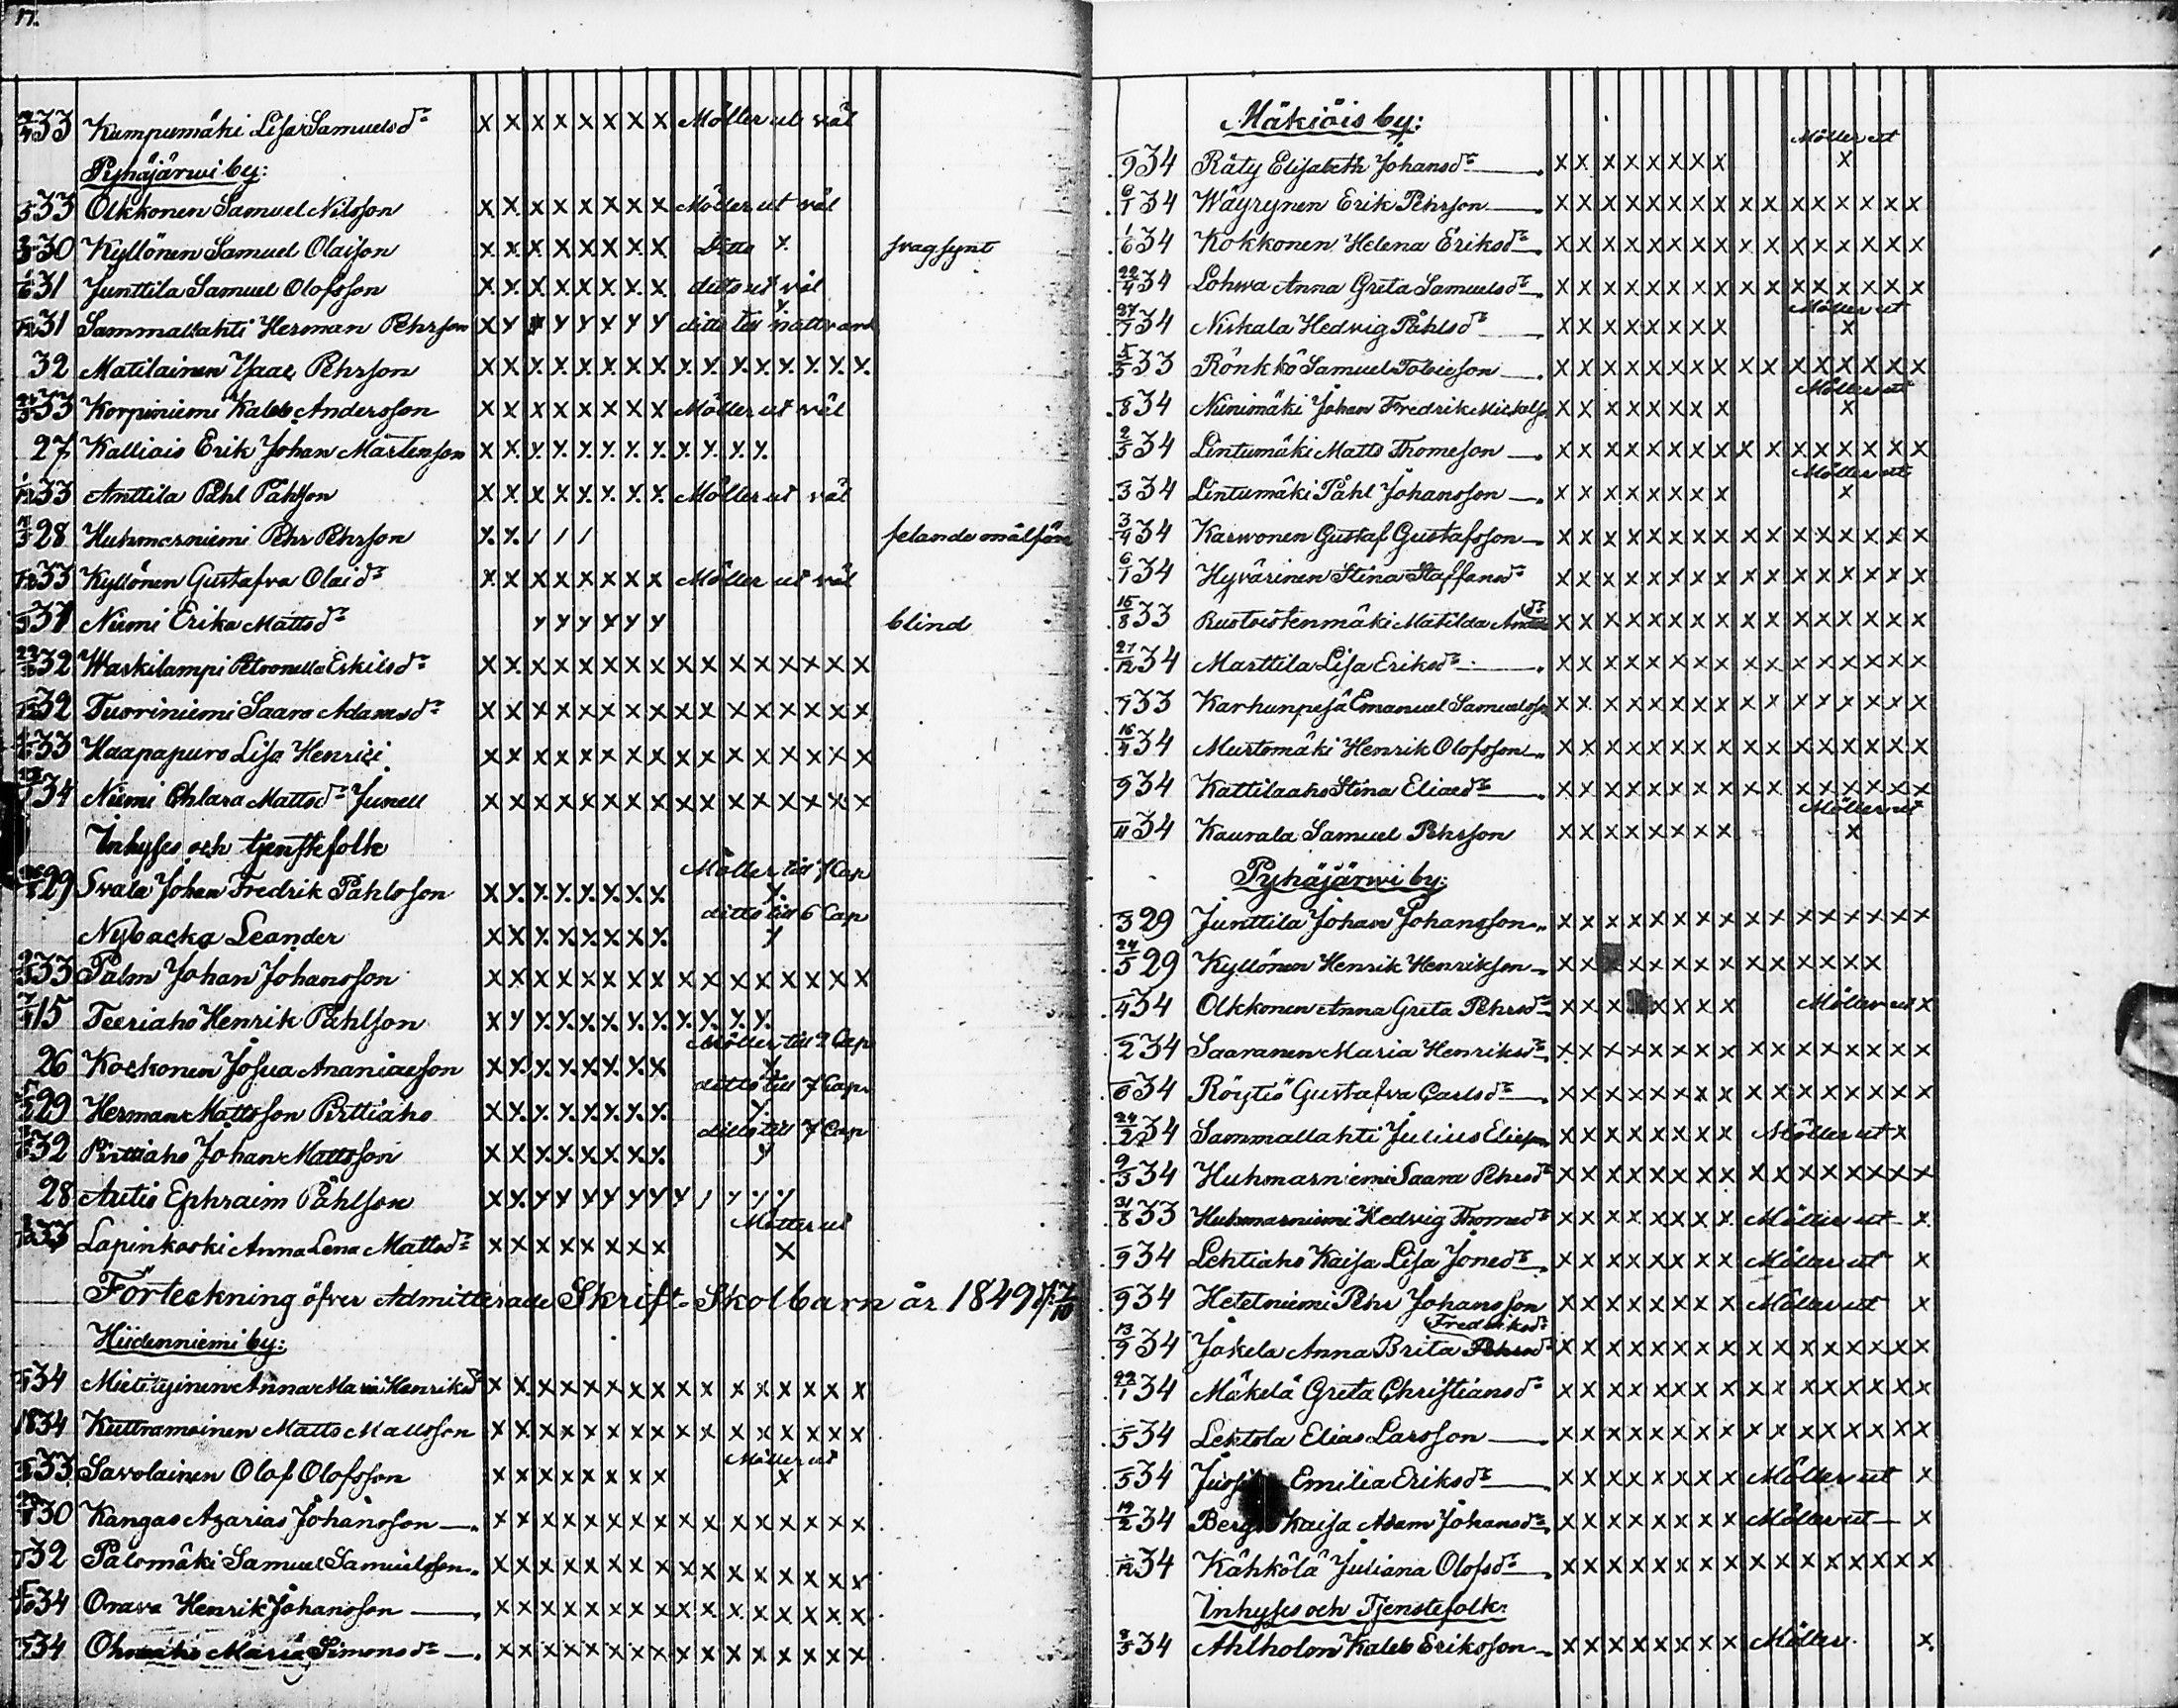 17.
33 Kumpumäki Lisa Samuelsdr x x x x x x x x Möller ut väl
Pyhäjärwi by:
33 Olkkonen Samuel Nilsson x x x x x x x x Möller ut väl
30 Kyllönen Samuel Olaison x x x x x x x x Ditto x svagsynt
31 Junttila Samuel Olofsson x x x x x x x x ditto ut väl
31 Sammallahti Herman Pehrson x y x y y y y y ditto till nattvard
32 Matilainen Isaac Pehrson x x x x x x x x x x x x x x x x
33 Korpiniemi Kaleb Andersson x x x x x x x x Möller ut väl
27 Kalliais Erik Johan Mårtenson x x x x x x x x x x x x
33 Anttila Påhl Påhlson x x x x x x x x Möller ut väl
28 Huhmarniemi Pehr Pehrson x x / / / felande målför
33 Kyllönen Gustafva Olaidr x x x x x x x x Möller ut väl
31 Niemi Erika Mattsdr y y y y y y blind
32 Waskilampi Petronella Eskilsdr x x x x x x x x x x x x x x x x
32 Tuoriniemi Saara Adamsdr x x x x x x x x x x x x x x x x
33 Haapapuro Lisa Henrici x x x x x x x x x x x x x x x x
34 Niemi Chlara Mattsdr Junell x x x x x x x x x x x x x x x x
Inhyses och tjenstefolk
Möller till 7 Cap
29 Svala Johan Fredrik Påhlsson x x x x x x x x x
ditto till 6 Cap
Nybacka Leander x x x x x x x x y
33 Palm Johan Johansson x x x x x x x x x x x x x x x x
7/4 15 Teeriaho Henrik Påhlson x y x x x x x x x x x x
Möller till 2 Cap
26 Kockonen Josua Ananiaeson x x x x x x x x x
ditto till 7 Cap
29 Herman Mattsson Pirttiaho x x x x x x x x y
ditto till 7 Cap
32 Pirttiaho Johan Mattsson x x x x x x x x y
28 Autio Ephraim Påhlson x x y y y y y y y / y y y
Möller ut
33 Lapinkoski Anna Lena Mattsdr x x x x x x x x x
Förteckning öfver Admitterade Skrift-Skolbarn år 1849 7/10
Hiidenniemi by:
34 Mietityinen Anna Maria Henriksdr x x x x x x x x x x x x x x x x
1834 Kuttramoinen Matts Mattsson x x x x x x x x x x x x x x x x
Möller ut
33 Savolainen Olof Olofsson x x x x x x x x x
30 Kangas Azarias Johansson x x x x x x x x x x x x x x x x
32 Palomäki Samuel Samuelsson x x x x x x x x x x x x x x x x
34 Orava Henrik Johansson x x x x x x x x x x x x x x x x
34 Maria Simonsdr x x x x x x x x x x x x x x x x
Mäkiöis by:
Möller ut
9 34 Räty Elisabeth Johansdr x x x x x x x x x
6/1 34 Wäyrynen Erik Pehrson x x x x x x x x x x x x x x x x
1/6 34 Kokkonen Helena Eriksdr x x x x x x x x x x x x x x x x
22/4 34 Lohwa Anna Greta Samuelsdr x x x x x x x x x x x x x x x x
Möller ut
27/7 34 Niskala Hedvig Påhlsdr x x x x x x x x x
5/5 33 Rönkkö Samuel Tobieson x x x x x x x x x x x x x x x x
Möller ut
8 34 Niinimäki Johan Fredrik Mickelss x x x x x x x x x
2/5 34 Lintumäki Matts Thomeson x x x x x x x x x x x x x x x x
Möller ut
3 34 Lintumäki Påhl Johansson x x x x x x x x x
3/4 34 Karwonen Gustaf Gustafsson x x x x x x x x x x x x x x x x
6/1 34 Hyvärinen Stina Staffansdr x x x x x x x x x x x x x x x x
15/8 33 Ruotoistenmäki Matilda Andersdr x x x x x x x x x x x x x x x x
27/12 34 Marttila Lisa Eriksdr x x x x x x x x x x x x x x x x
7 33 Karhunpesä Emanuel Samuelsson x x x x x x x x x x x x x x x x
16/4 34 Murtomäki Henrik Olofsson x x x x x x x x x x x x x x x x
9 34 Kattilaaho Stina Eliaedr x x x x x x x x x x x x x x x x
Möller ut
11 34 Kaurala Samuel Pehrson x x x x x x x x x
Pyhäjärwi by:
3 29 Junttila Johan Johansson x x x x x x x x x x x x x x x x
24/5 29 Kyllönen Henrik Henrikson x x x x x x x x x x x x x
4 34 Olkkonen Anna Greta Pehrsdr x x x x x x x Möller ut x
2 34 Saaranen Maria Henriksdr x x x x x x x x x x x x x x x x
6 34 Röytiö Gustafva Carlsdr x x x x x x x x x x x x x x x x
24/2 34 Sammallahti Julius Elieson x x x x x x x x Möller ut x
9/3 34 Huhmarniemi Saara Pehrsdr x x x x x x x x x x x x x x x x
31/8 33 Huhmarniemi Hedvig Thomedr x x x x x x x x Möller ut x
9 34 Lehtiaho Kaisa Lisa Jonedr x x x x x x x x Möller ut x
9 34 Hetetniemi Pehr Johansson x x x x x x x x Möller ut x
Fredriksdr
13/9 34 Jakela Anna Brita Pehrsdr x x x x x x x x x x x x x x x x
22/1 34 Mäkelä Greta Christiansdr x x x x x x x x x x x x x x x x
5 34 Lehtola Elias Larsson x x x x x x x x x x x x x x x x
5 34 Emilia Eriksdr x x x x x x x x Möller ut x
19/2 34 Kaisa Adam Johansdr x x x x x x x x Möller ut x
12 34 Kähkölä Juliana Olofsdr x x x x x x x x x x x x x x x x
Inhyses och Tjenstefolk:
8/5 34 Ahlholm Kaleb Eriksson x x x x x x x x Möller x